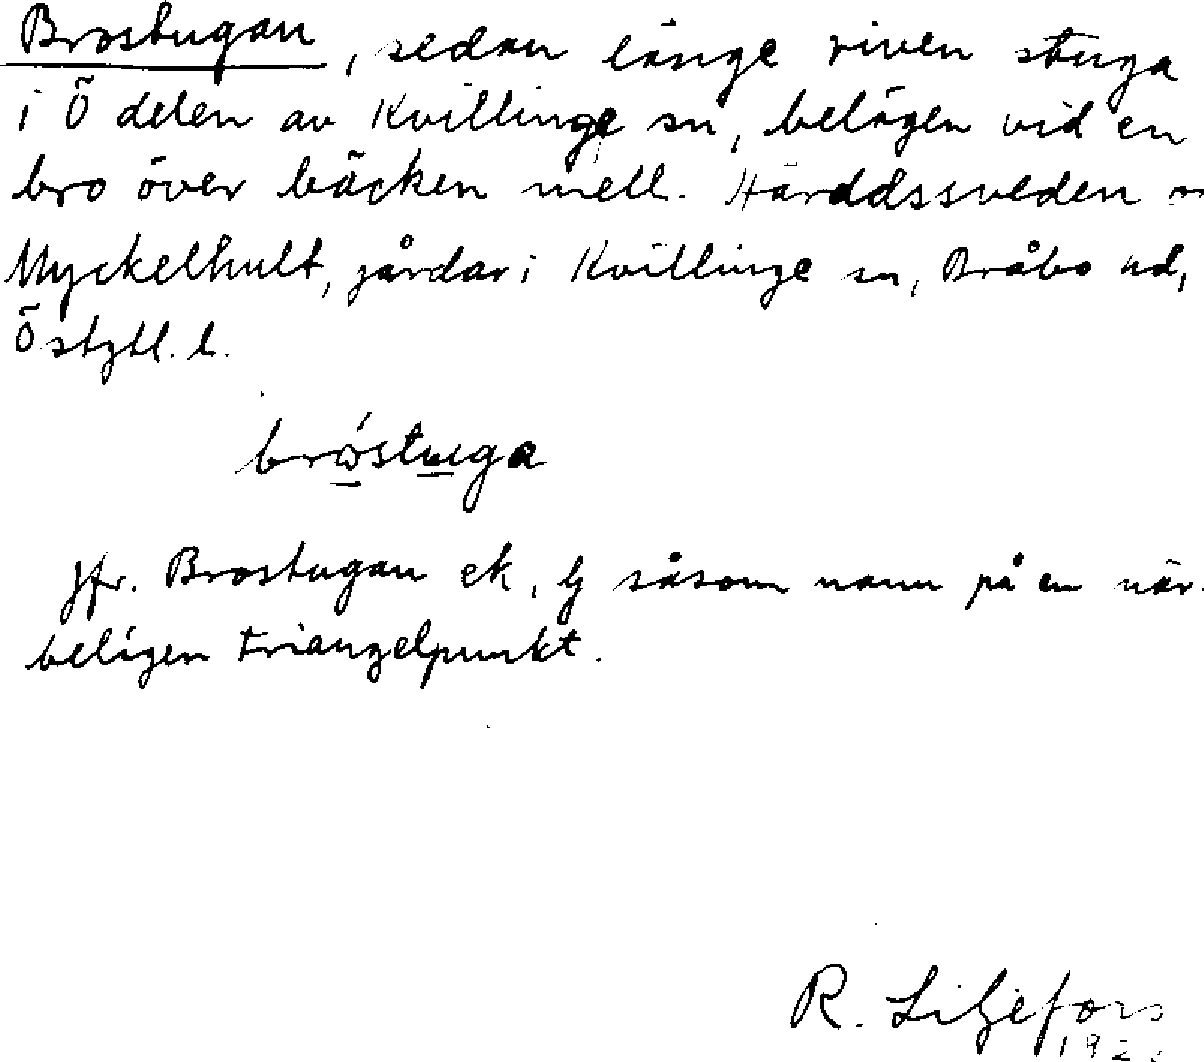 Brostugan, sedan länge riven stuga
i Ö delen av Kvillinge sn, belägen vid en
bro över bäcken mell. Härddssveden o
Myckelhult, gårdar i Kvillinge sn, Bråbo hd,
Östgtl. l.
bró̱stu̱ga
Jfr. Brostugan ek, såsom namn på en när-
belägen triangelpunkt.
R. Liljefors